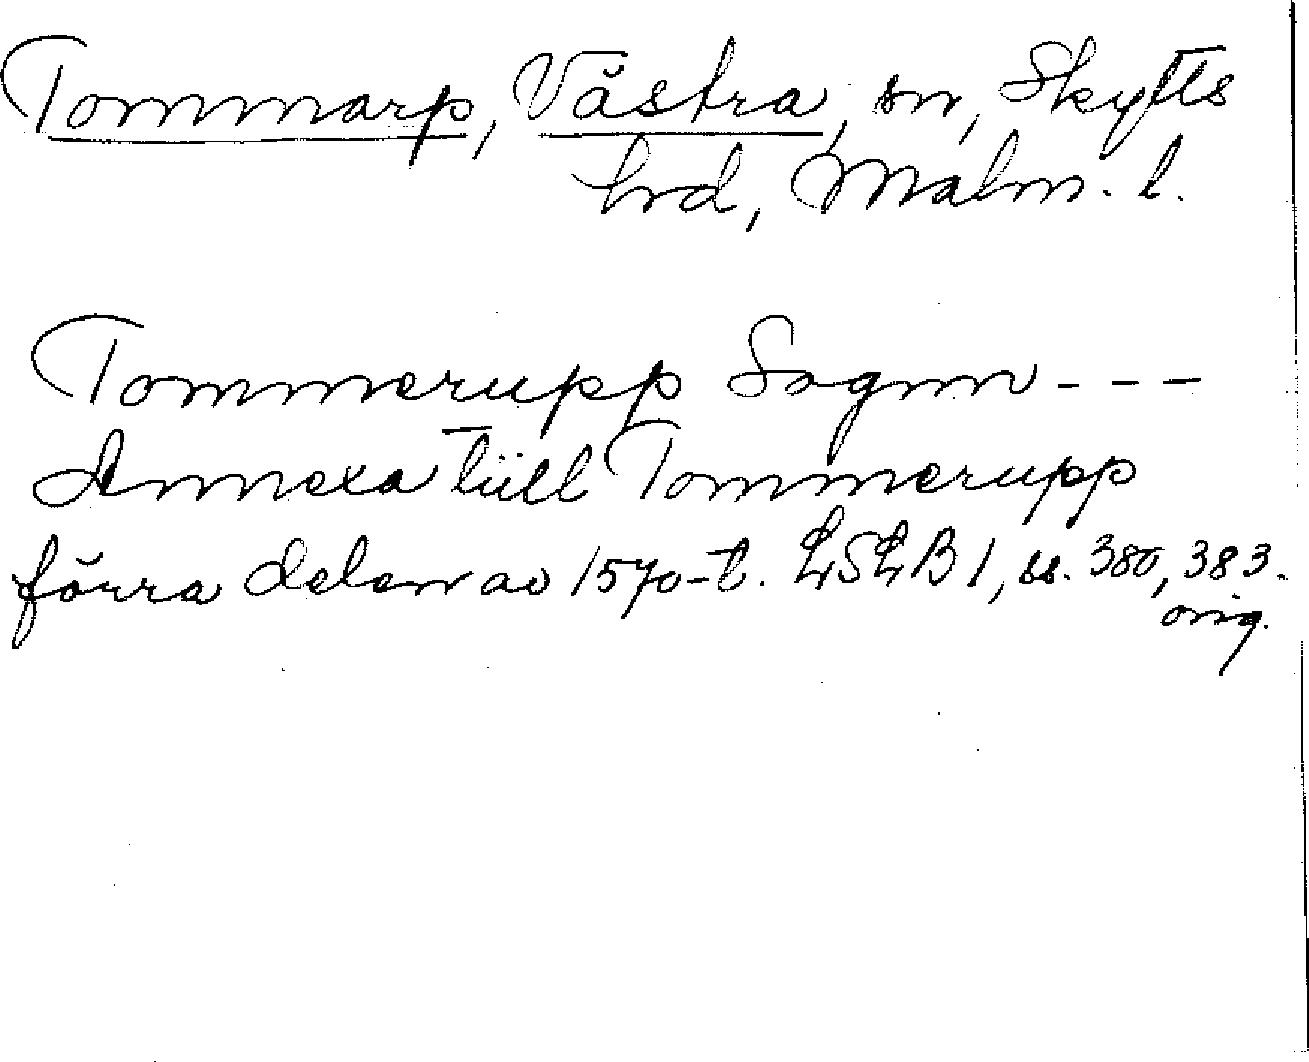 Tommarp, Västra, sn, Skytts
hrd, Malm. l.
Tommerupp Sognn - - -
Annexa tiill Tommerupp
förra delen av 1570-t. LSLB 1, ss. 380, 383.
orig.